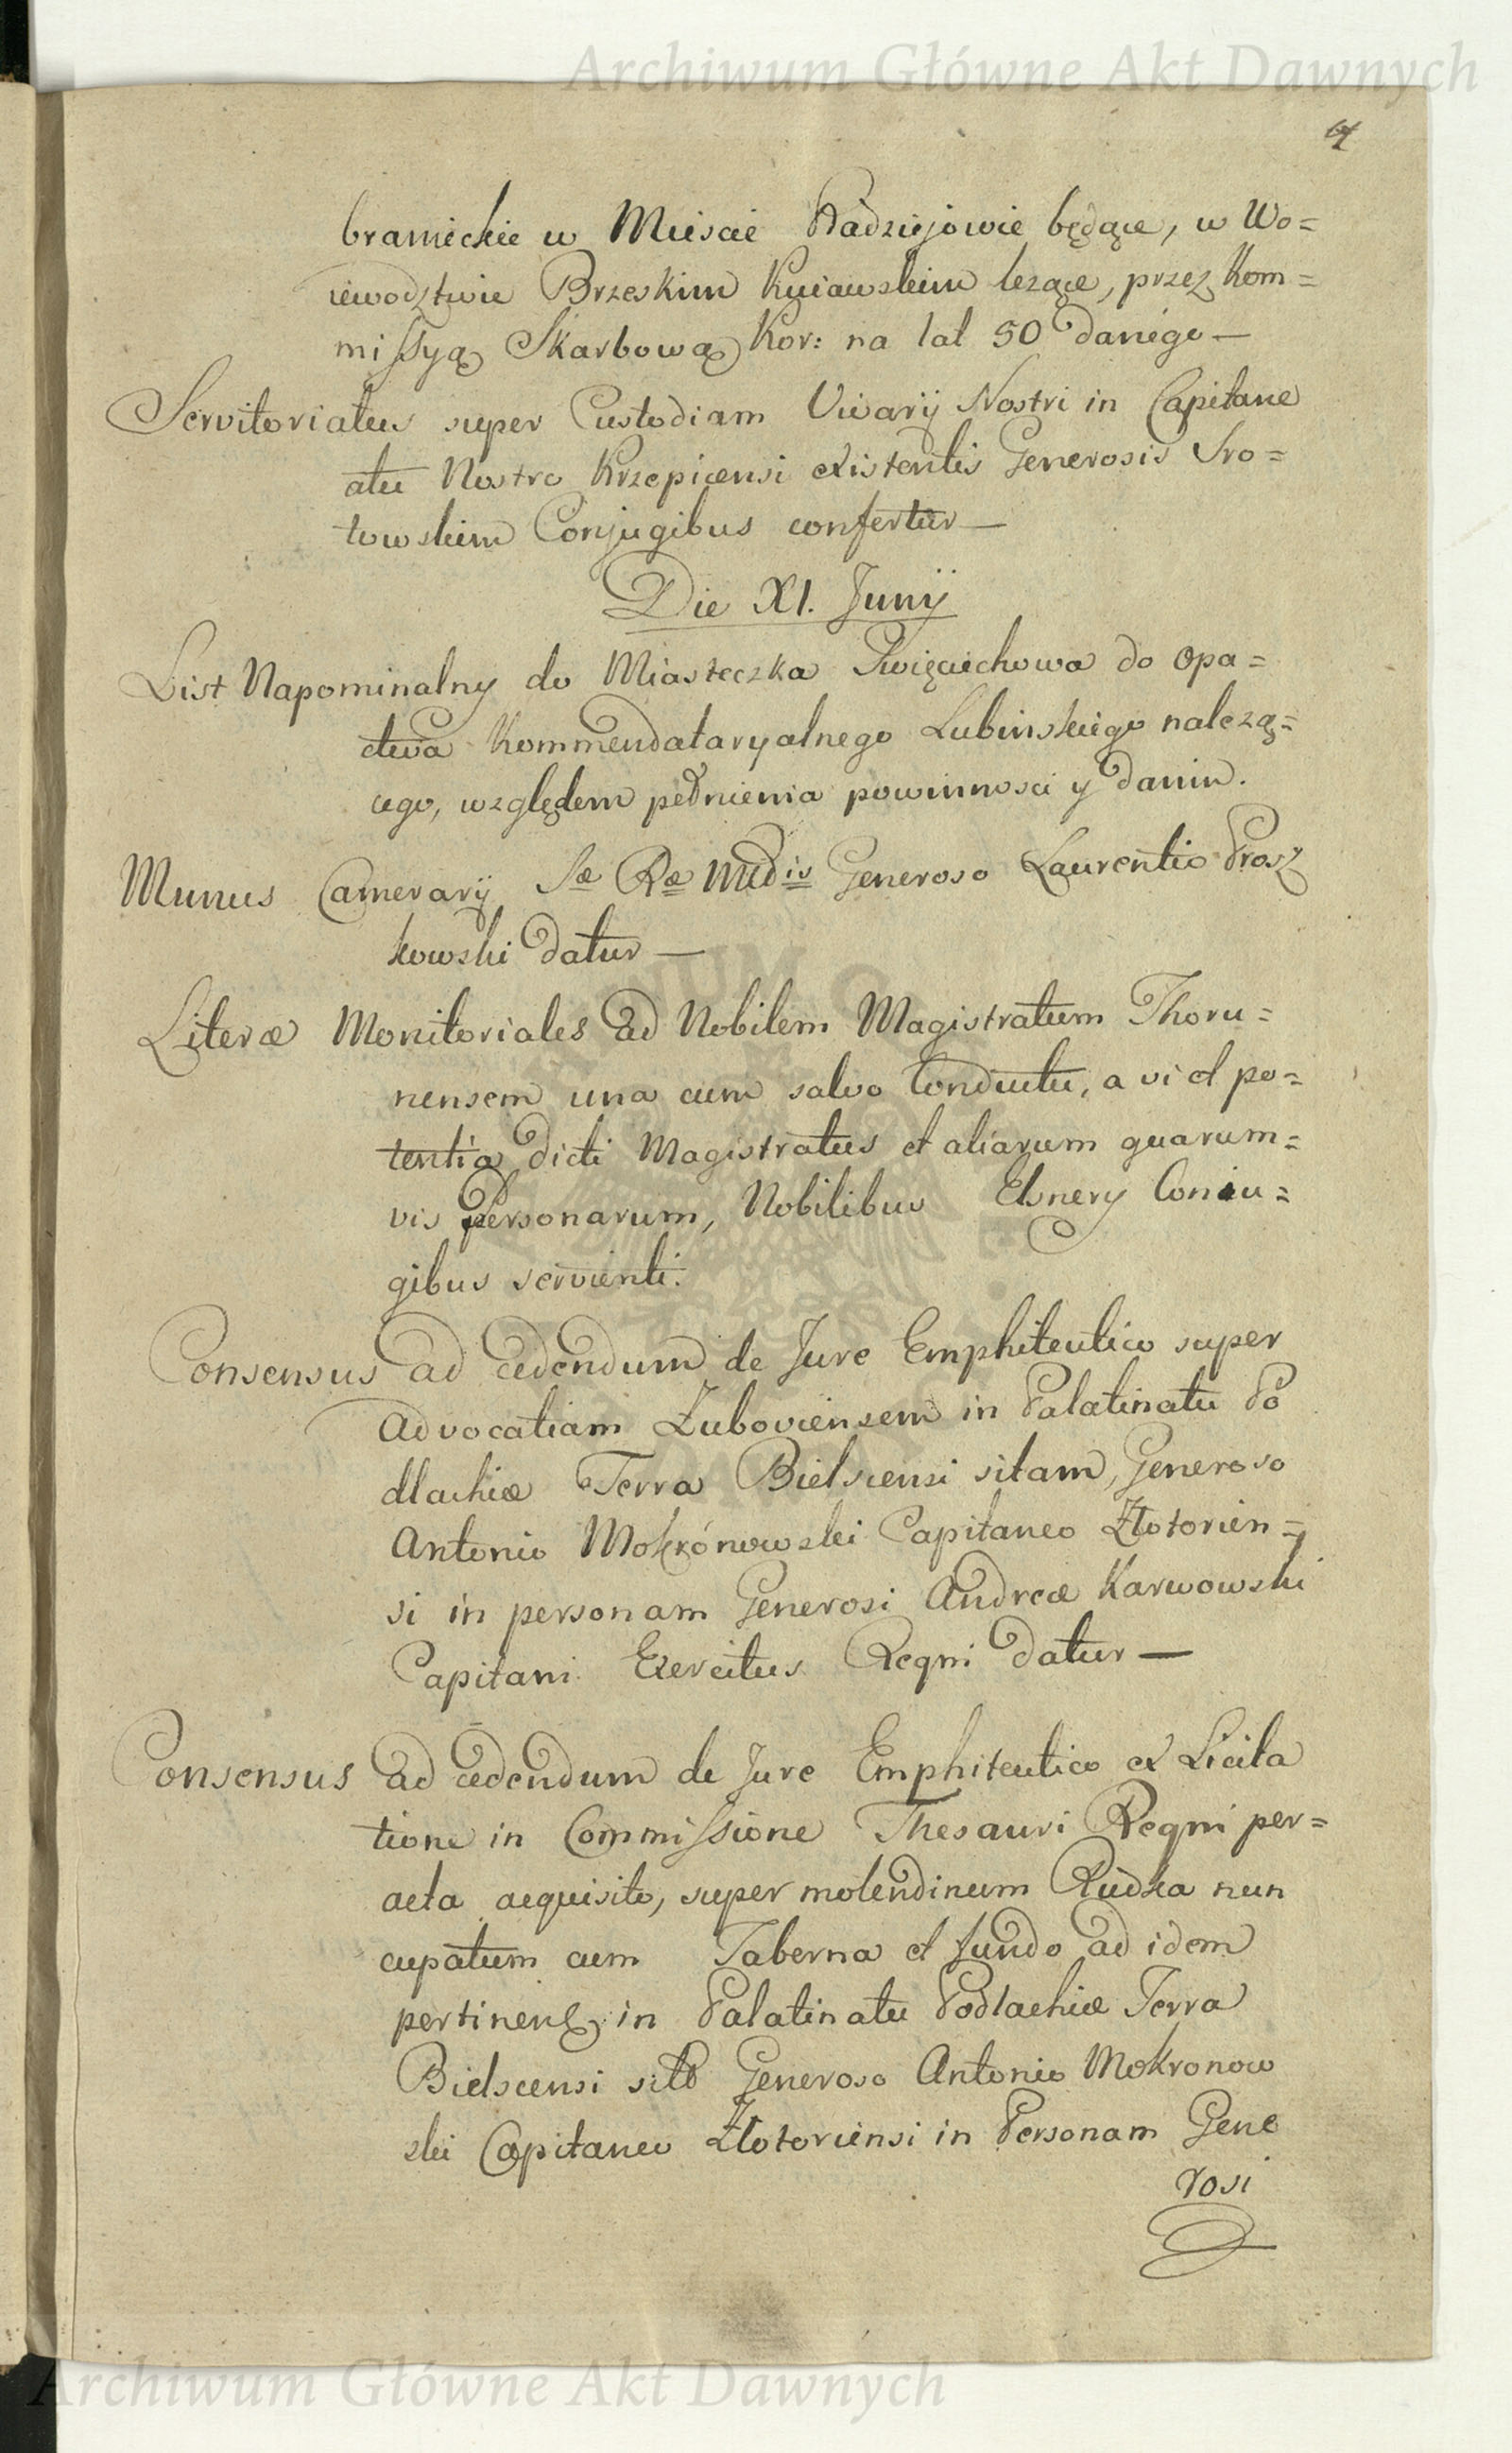 Archiwum Główne Akt Dawnych
bramieckie w Mieście Radziejowie będące, w Wo=
iewodztwie Brzeskim Kuiawskim leżące, przez Kom=
missyą Skarbową Kor: na lat 50 danego —
Servitoriatus super Custodiam Vivarij Nostri in Capitane
atu Nostro Krzepicensi existentis Generosis Sro=
towskim Conjugibus confertur —
Die XI. Junij
List Napominalny do Miasteczka Swięciechowa do Opa=
ctwa Kommendataryalnego Lubinskiego należą=
cego, względem pełnienia powinnosci y danin.
Munus Camerarij Sæ Ræ Mtis Generoso Laurentio Prosz
kowski datur —
Literæ Monitoriales ad Nobilem Magistratum Thoru=
nensem una cum salvo Conductu, a vi et po=
tentia dicti Magistratus et aliarum quarum=
vis Personarum, Nobilibus Elsnery Coniu=
gibus servienti.
Consensus ad cedendum de Jure Emphiteutico super
Advocatiam Zuboviensem in Palatinatu Po
dlachiæ Terra Bielscensi sitam, Generoso
Antonio Mokrónowski Capitaneo Złotorien=
si in personam Generosi Andreæ Karwowski
Capitani Exercitus Regni datur —
Consensus ad cedendum de Jure Emphiteutico ex Licita
tione in Commissione Thesauri Regni per=
acta acquisito, super molendinum Rudka nun
cupatum cum Taberna et fundo ad idem
pertinen in Palatinatu Podlachiæ Terra
Bielscensi sito Generoso Antonio Mokronow
ski Capitaneo Złotoriensi in Personam Gene
rosi
Archiwum Główne Akt Dawnych